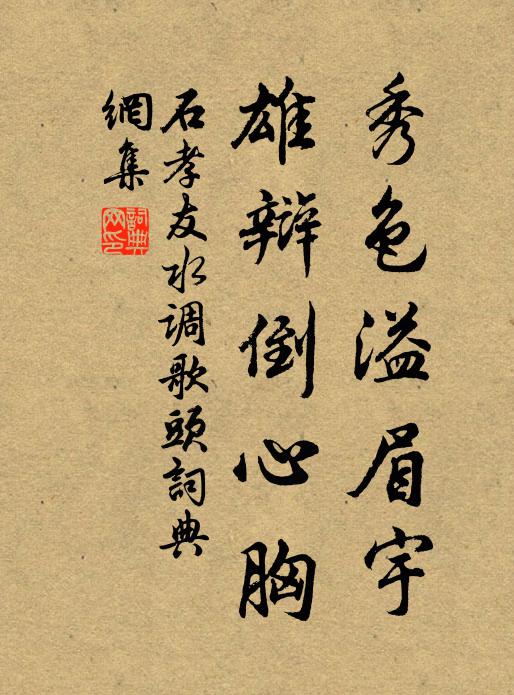 秀色溢眉宇
雄辯倒心胸
石孝友水调歌頭詞典
網集
詞典网印